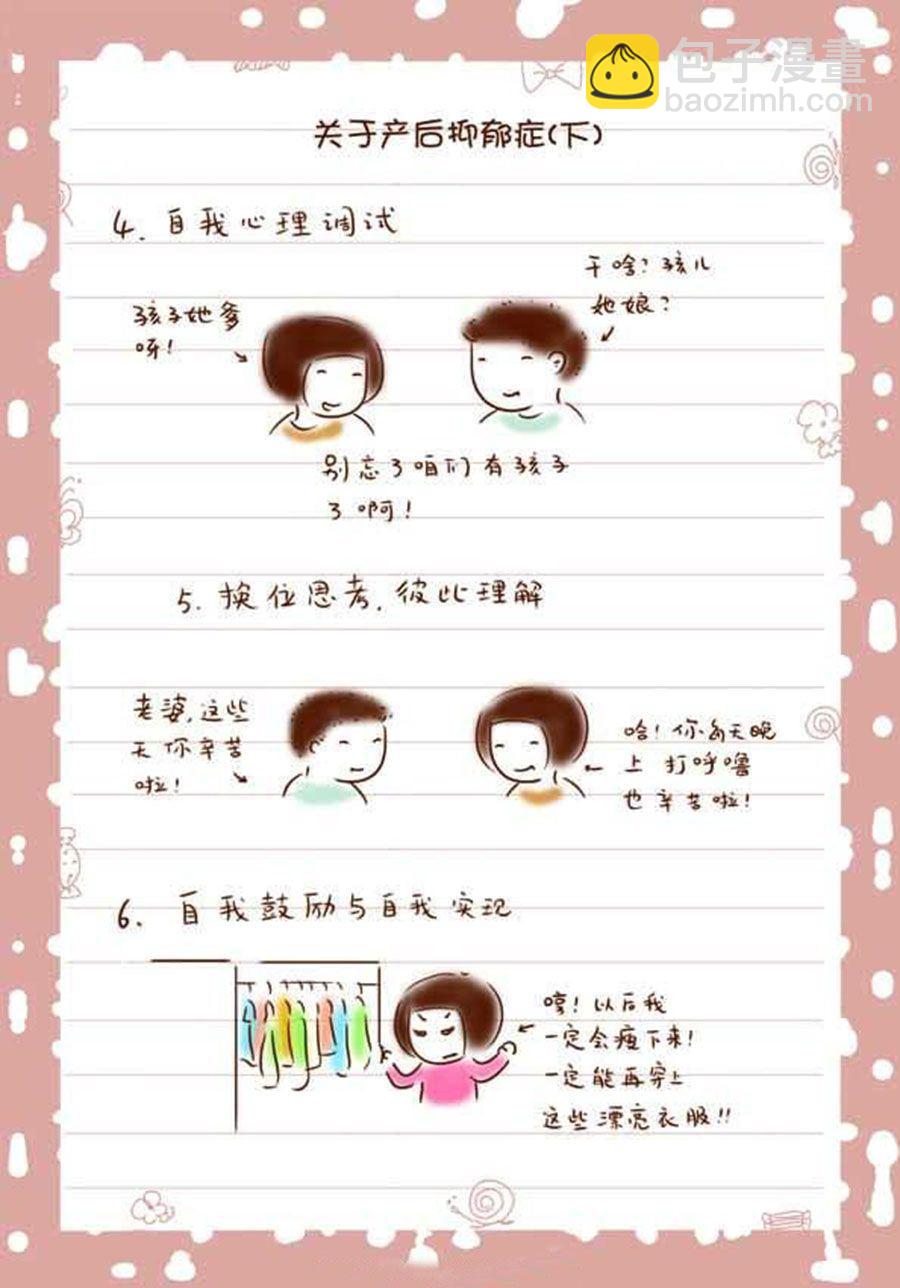 包子漫畫
baozimh.com
关于产后抑郁症(下)
4. 自我心理调试
干啥?孩儿
她娘?
孩子她爹
呀!
别忘了咱们有孩子
了啊!
5. 换位思考,彼此理解
老婆,这些
天你辛苦
啦!
哈!你每天晚
上打呼噜
也辛苦啦!
6. 自我鼓励与自我实现
哼!以后我
一定会瘦下来!
一定能再穿上
这些漂亮衣服!!